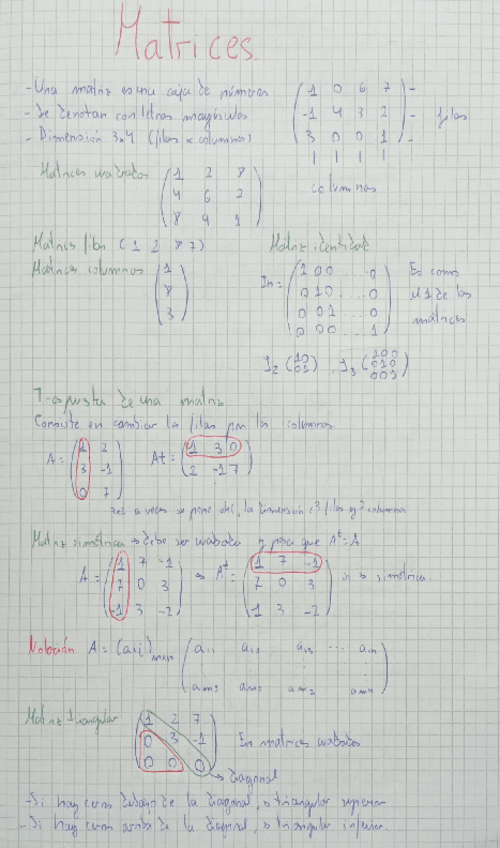 Matrices.
- Una matriz es una caja de números
- Se denotan con letras mayúsculas
- Dimensión 3x4 (filas x columnas)
1 0 6 7 -
-1 4 3 2 - filas
3 0 0 1 -
columnas
Matrices cuadradas
1 2 8
4 6 2
8 9 1
Matrices filas (1 2 8 7)
Matrices columnas
1
8
3
Matriz identidad
In =
1 0 0 ... 0
0 1 0 ... 0
0 0 1 ... 0
0 0 0 ... 1
Es como
el 1 de las
matrices
I2 (1 0
0 1)
, I3 (1 0 0
0 1 0
0 0 1)
Traspuesta de una matriz
Consiste en cambiar las filas por las columnas.
A =
1 2
3 -1
0 7
At =
1 3 0
2 -1 7
a veces se pone así, la dimensión 3 filas y 2 columnas
Matriz simétrica → debe ser cuadrada y pasa que A^t = A
A =
1 7 -1
7 0 3
-1 3 -2
→ A^t =
1 7 -1
7 0 3
-1 3 -2
sí es simétrica.
Notación A = (aij) mxn
a11 a12 a13 ... a1n
am1 am2 amn
Matriz triangular
1 2 7
0 3 -1
0 0 0
En matrices cuadradas
→ diagonal
- Si hay ceros debajo de la diagonal, es triangular superior
- Si hay ceros arriba de la diagonal, es triangular inferior.